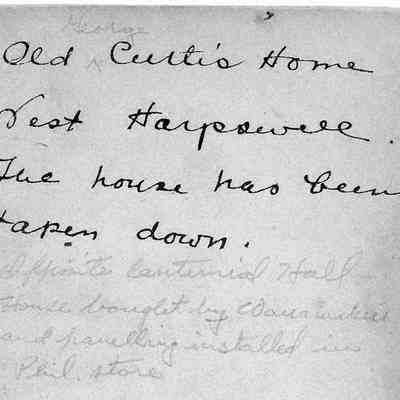 George
Old ^ Curtis Home
West Harpswell.
The house has been
taken down.
Opposite Centennial Hall
House bought by Wanamaker
and panelling installed in
Phil. store